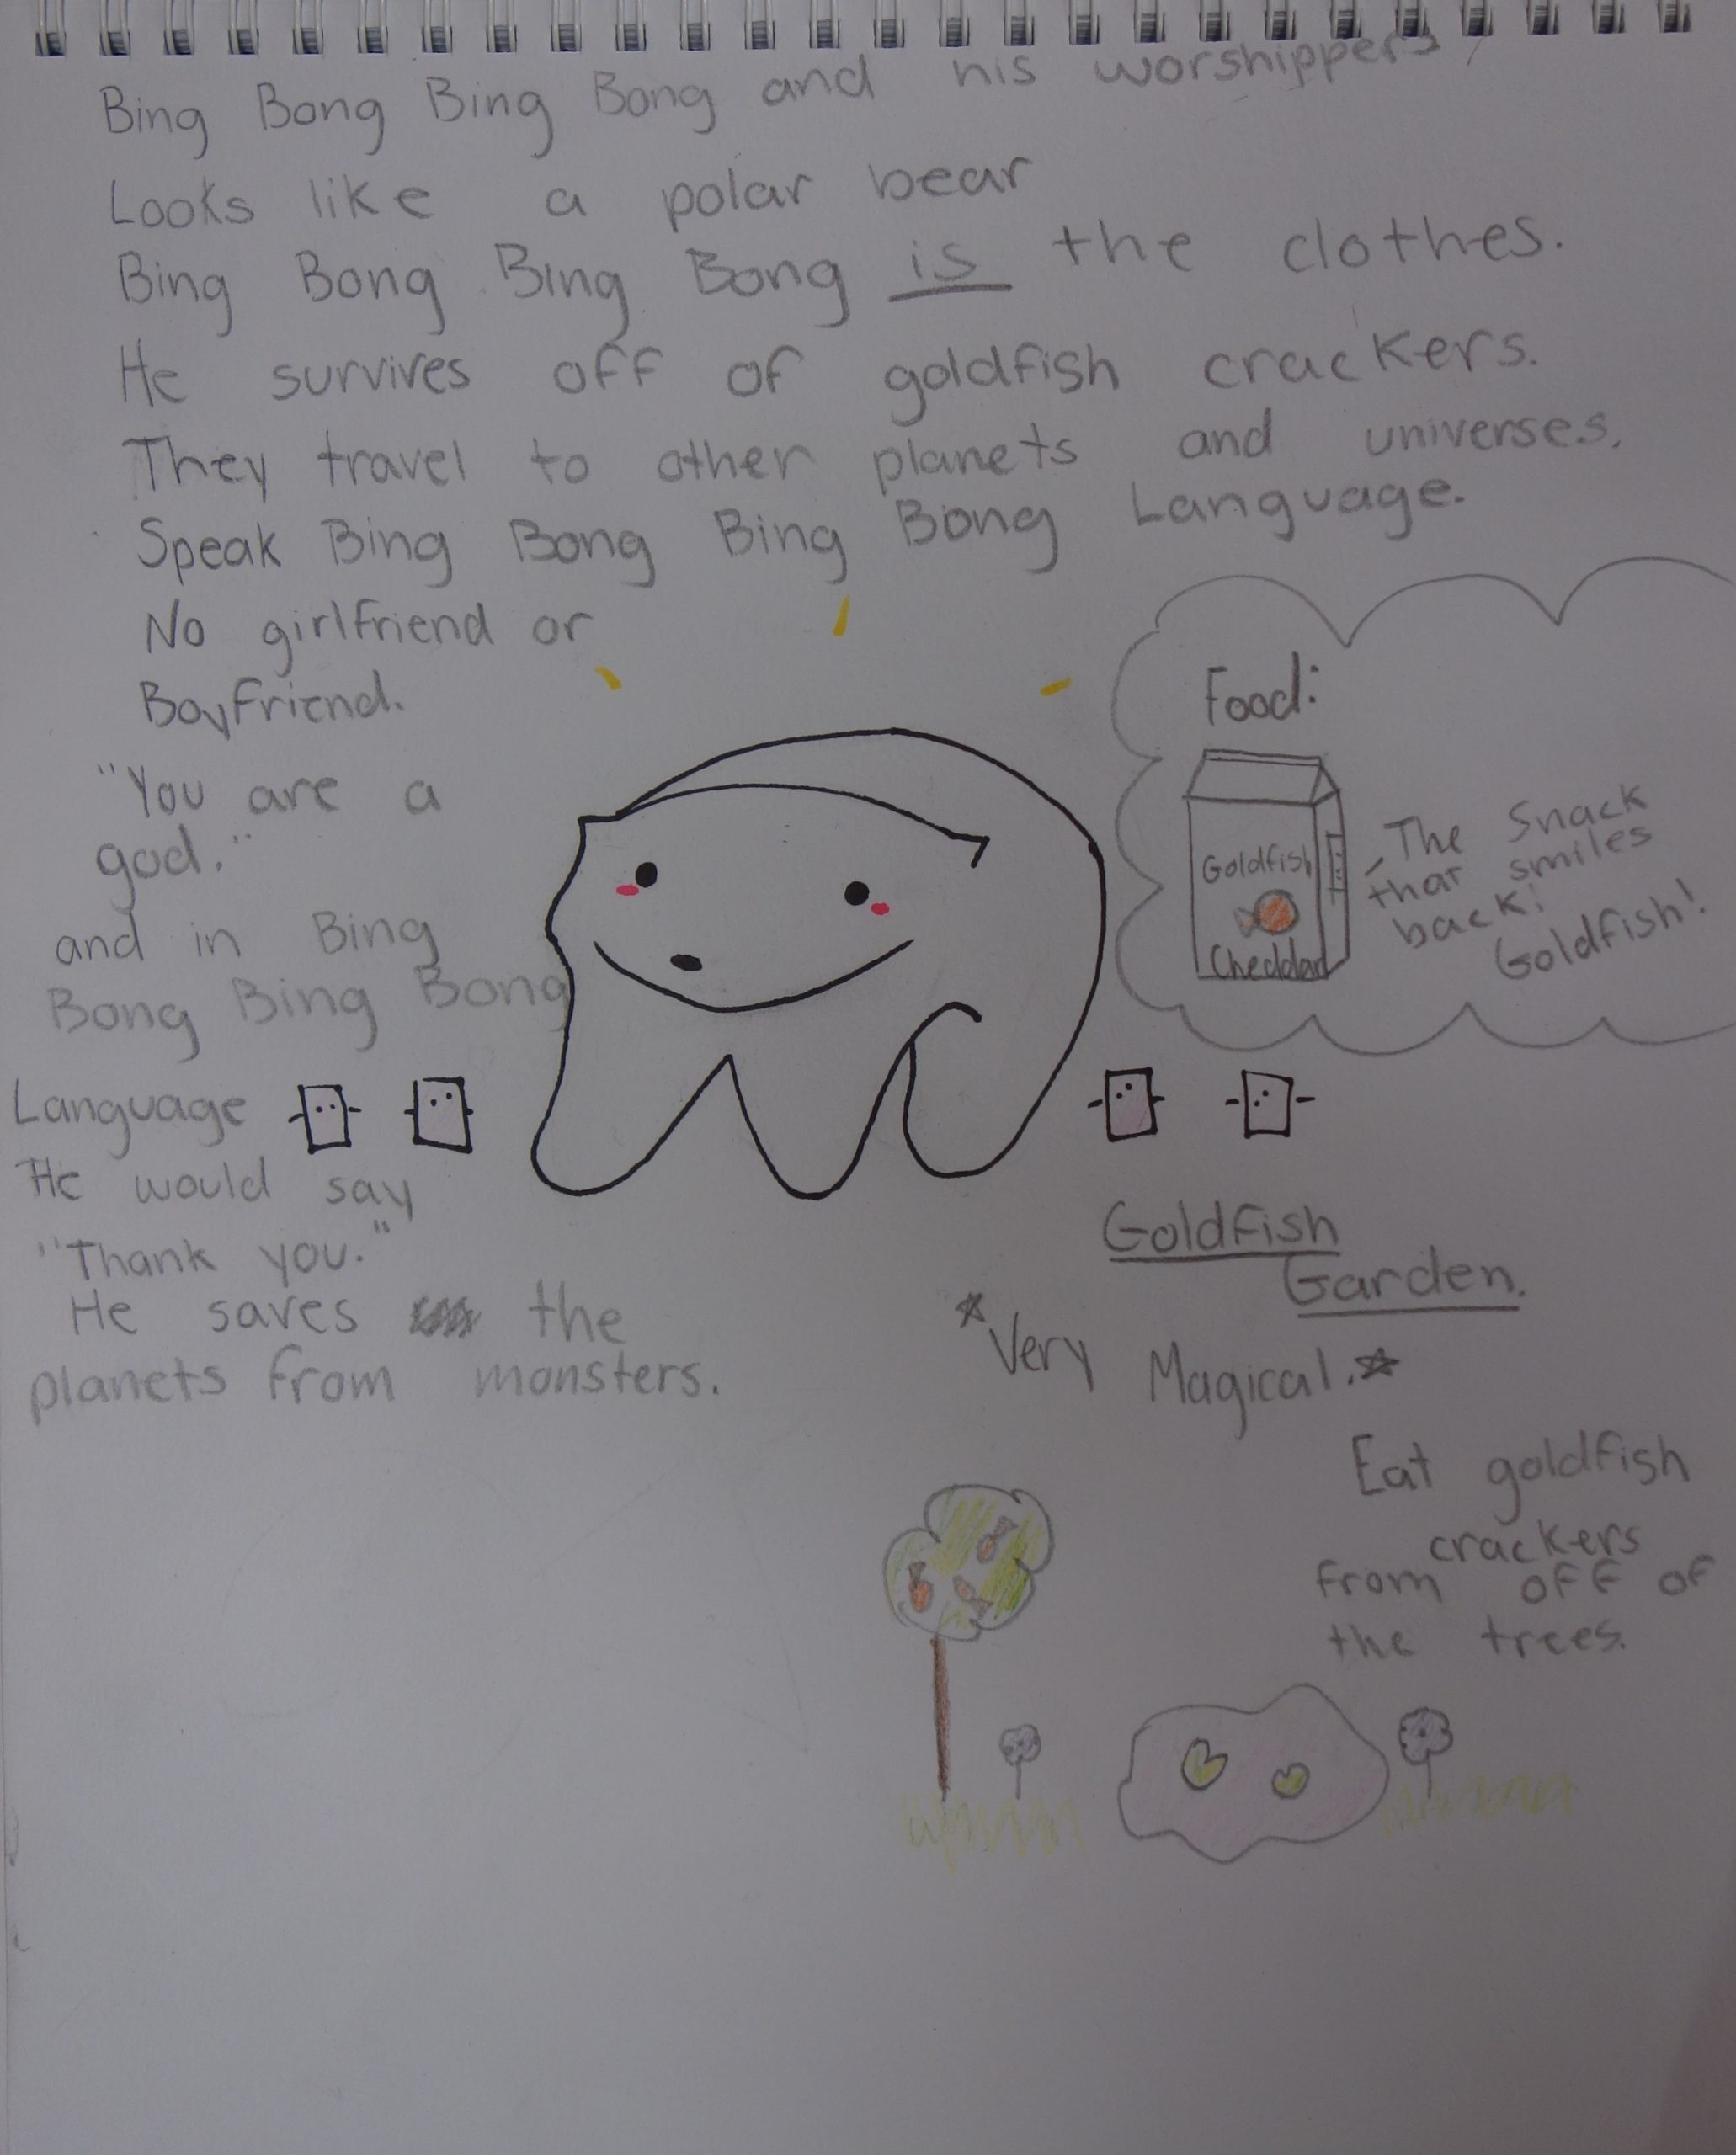 Bing Bong Bing Bong and his worshippers
Looks like a polar bear
Bing Bong Bing Bong is the clothes.
He survives off of goldfish crackers.
They travel to other planets and universes.
Speak Bing Bong Bing Bong Language.
No girlfriend or
Boyfriend.
"You are a
god."
and in Bing
Bong Bing Bong
Language
He would say
"Thank you."
He saves the
planets from monsters.
Food:
Goldfish
Cheddar
The Snack
that smiles
back!
Goldfish!
Goldfish
Garden.
*Very Magical.*
Eat goldfish
crackers
from off of
the trees.